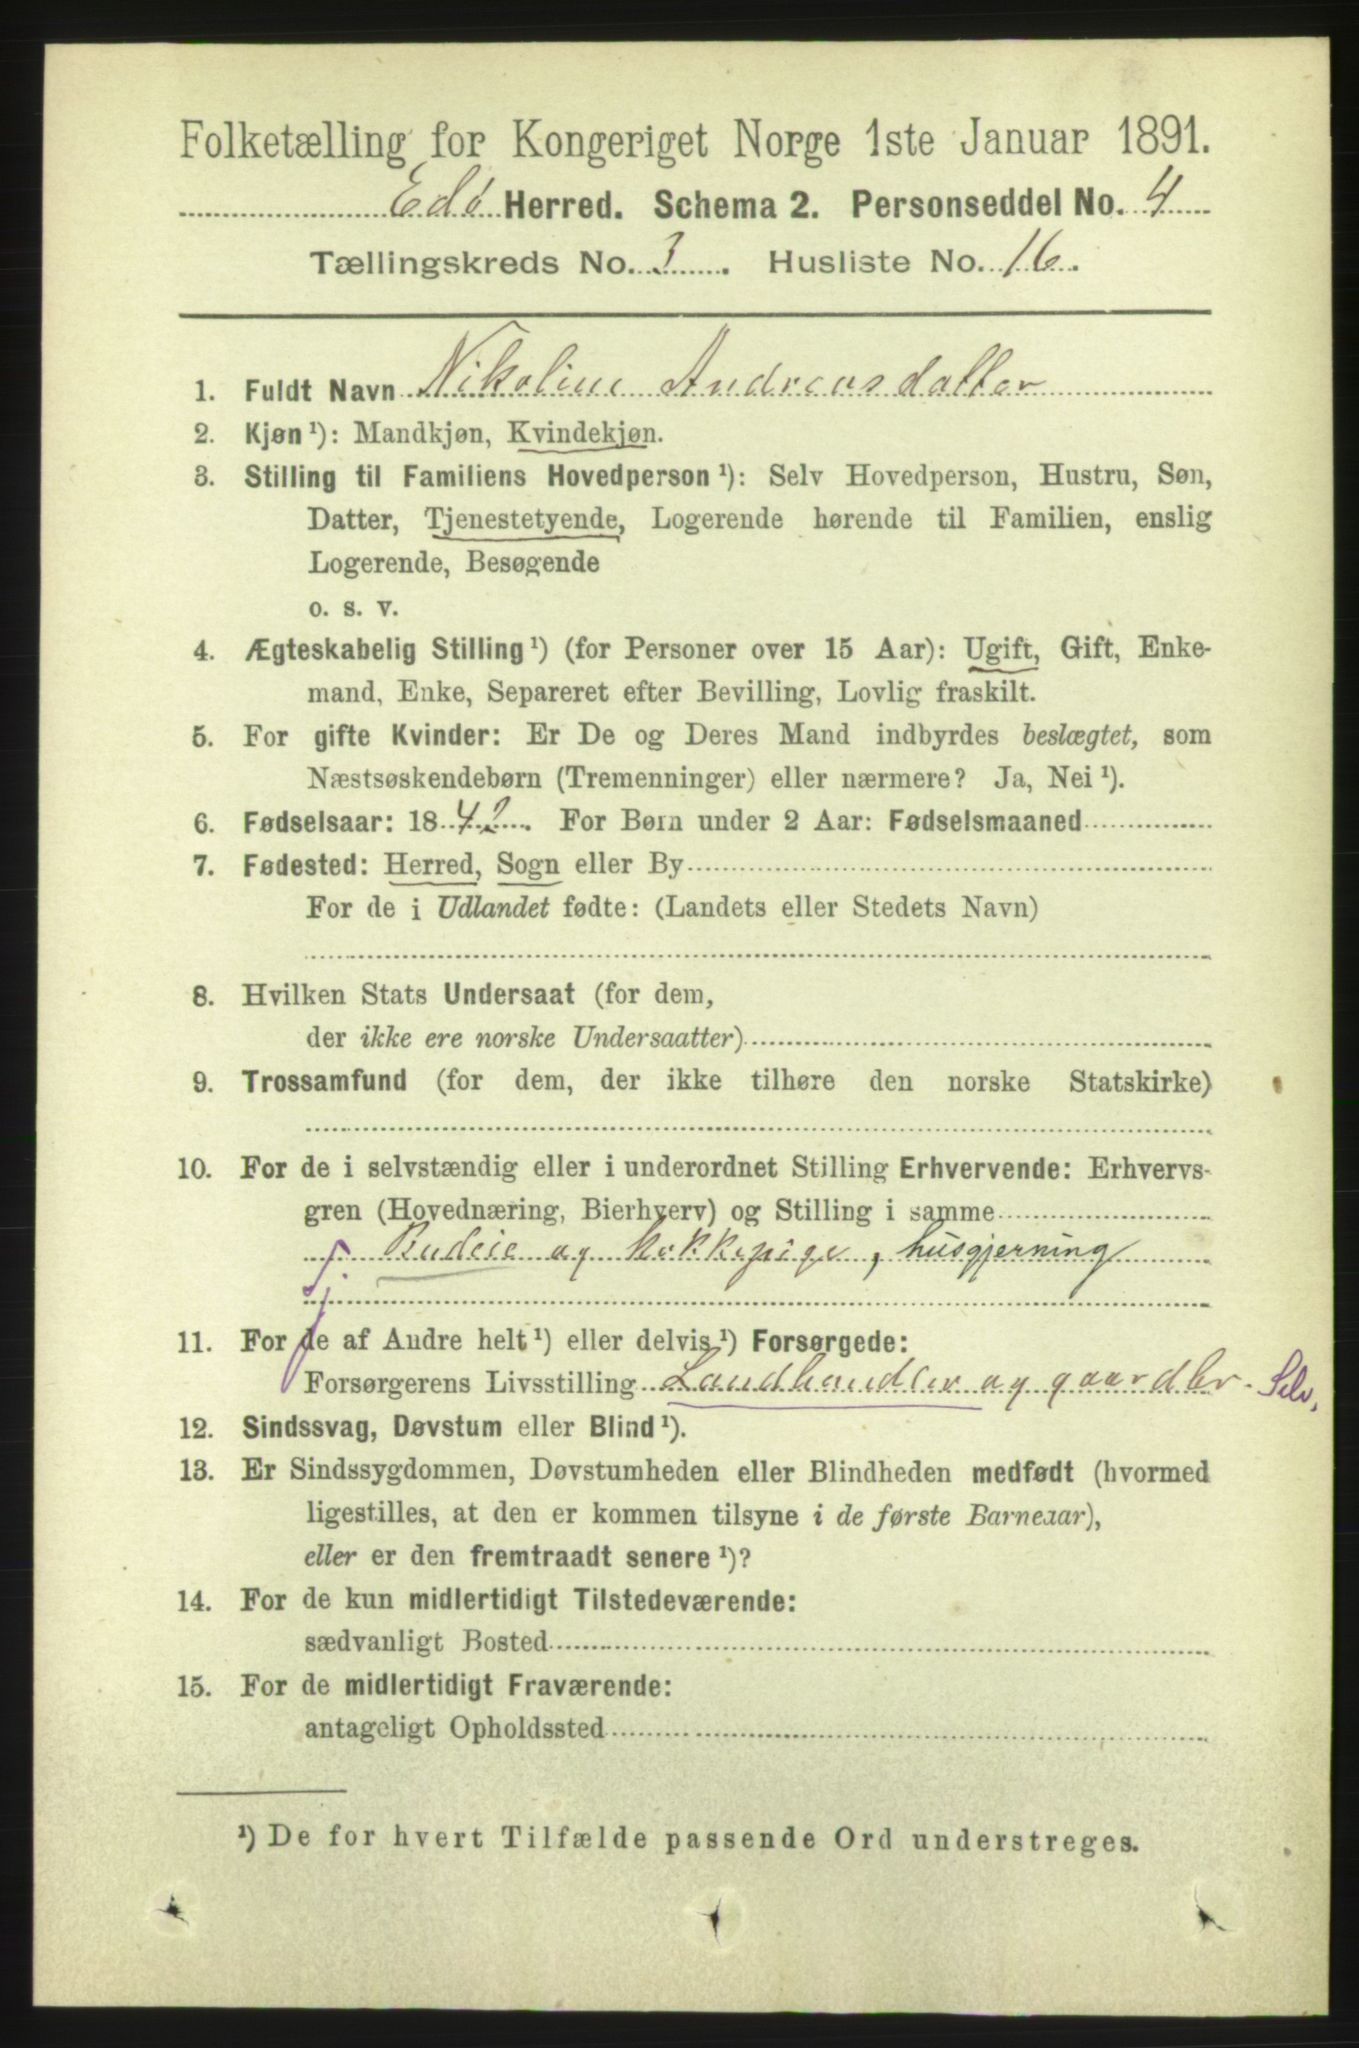 Folketælling for Kongeriget Norge 1ste Januar 1891.
Edø Herred. Schema 2. Personseddel No. 4
Tællingskreds No. 3. Husliste No. 16.
1. Fuldt Navn Nikoline Andreasdatter
2. Kjøn¹): Mandkjøn, Kvindekjøn.
3. Stilling til Familiens Hovedperson¹): Selv Hovedperson, Hustru, Søn,
Datter, Tjenestetyende, Logerende hørende til Familien, enslig
Logerende, Besøgende
o. s. v.
4. Ægteskabelig Stilling¹) (for Personer over 15 Aar): Ugift, Gift, Enke-
mand, Enke, Separeret efter Bevilling, Lovlig fraskilt.
5. For gifte Kvinder: Er De og Deres Mand indbyrdes beslægtet, som
Næstsøskendebørn (Tremenninger) eller nærmere? Ja, Nei¹).
6. Fødselsaar: 1842. For Børn under 2 Aar: Fødselsmaaned
7. Fødested: Herred, Sogn eller By
For de i Udlandet fødte: (Landets eller Stedets Navn)
8. Hvilken Stats Undersaat (for dem,
der ikke ere norske Undersaatter)
9. Trossamfund (for dem, der ikke tilhøre den norske Statskirke)
10. For de i selvstændig eller i underordnet Stilling Erhvervende: Erhvervs-
gren (Hovednæring, Bierhverv) og Stilling i samme
Budeie og kokkepige, husgjerning
11. For de af Andre helt¹) eller delvis¹) Forsørgede:
Forsørgerens Livsstilling Landhandler og gaardbr. Selv.
12. Sindssvag, Døvstum eller Blind¹).
13. Er Sindssygdommen, Døvstumheden eller Blindheden medfødt (hvormed
ligestilles, at den er kommen tilsyne i de første Barneaar),
eller er den fremtraadt senere¹)?
14. For de kun midlertidigt Tilstedeværende:
sædvanligt Bosted
15. For de midlertidigt Fraværende:
antageligt Opholdssted
¹) De for hvert Tilfælde passende Ord understreges.